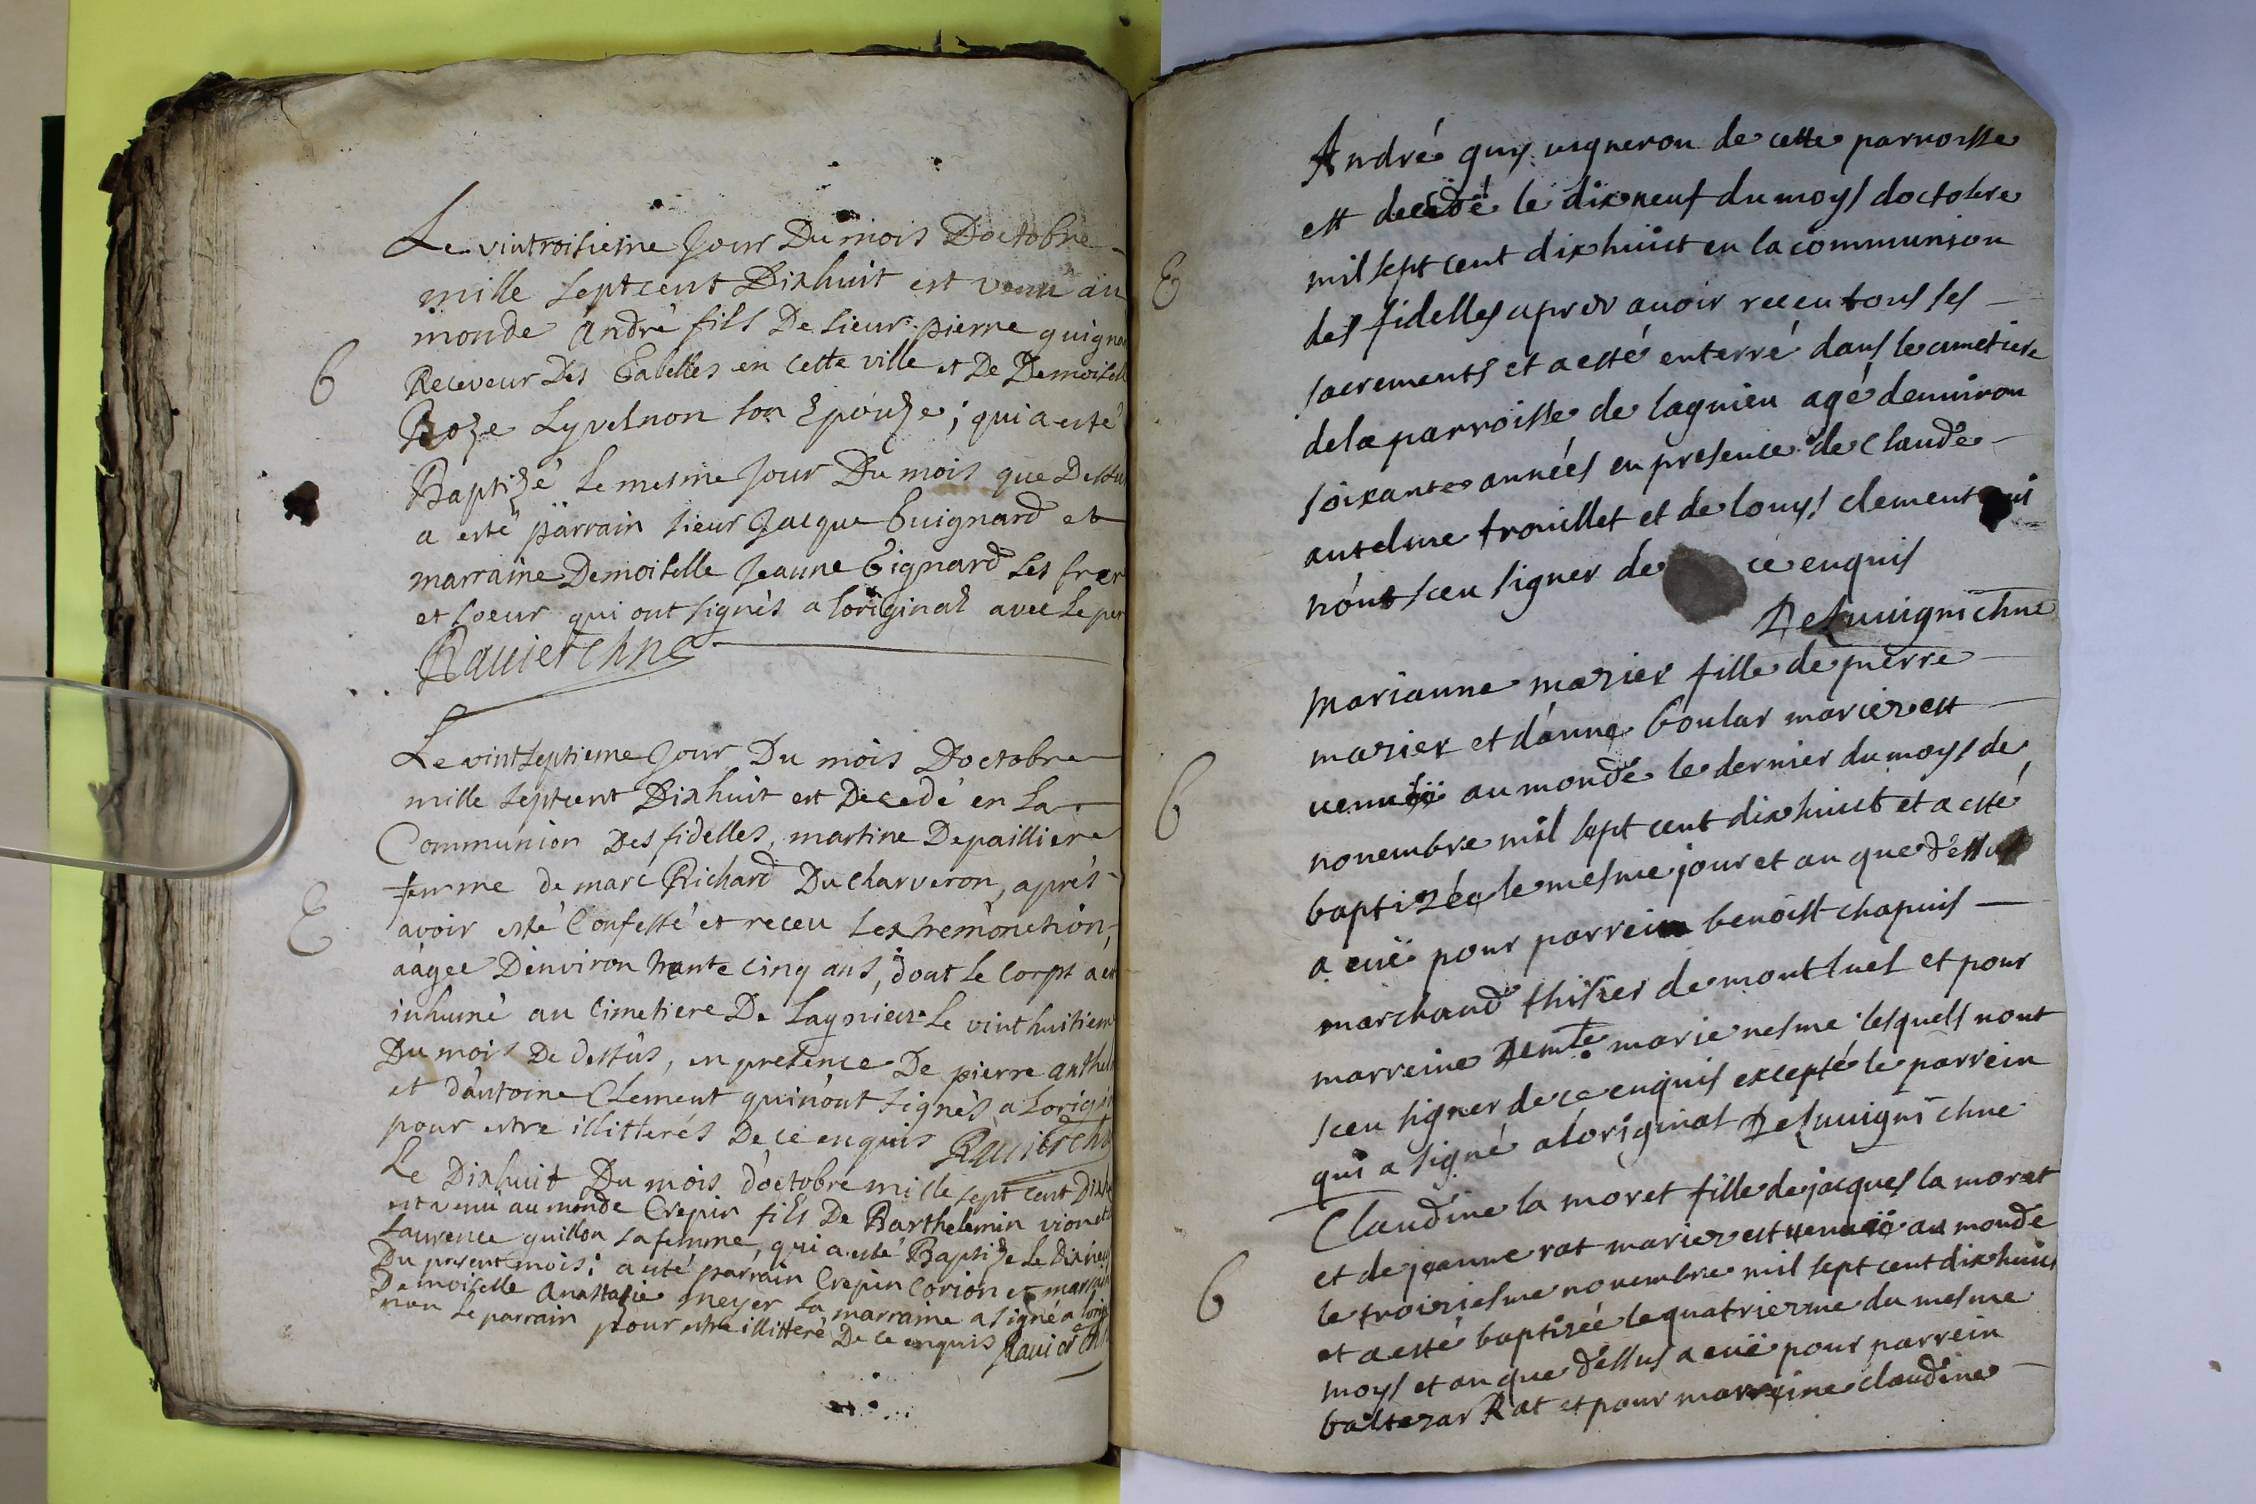 Le vintroisieme Jour Du mois Doctobre
mille Septcent Dixhuit est venu au
monde André fils De sieur pierre guigna
B
Receveur Des Gabelles en cette ville et De Demoiselle
Roze Lyvesnon son Epouze; qui a esté
Baptizé Le mesme Jour Du mois que Dessu
a esté parrain sieur Jacque Guignard et
marraine Demoiselle Jeanne Gignard Les frer
et soeur qui ont signés a Loriginal avec Le per
Ravier Chne
Le vintseptieme Jour Du mois Doctobre
mille septcent Dixhuit est Decedé en La
Communion Des fidelles, martine Depailliere
femme de marc Richard Du Charveron, aprés
E
avoir esté Confessé et receu Lextremonction,
aagee Denviron trante cinq ans, dont Le Corps a est
inhumé au Cimetiere De Lagnieu Le vinthuitiem
Du mois De dessus, en presence De pierre anthel
et d'antoine Clement qui n'ont signés a Lorigi
pour estre illitterés De ce enquis Ravier Chn
Le Dixhuit Du mois d'octobre mille sept cent Dixh
est venu au monde Crepin fils De Barthelemin vionet
Laurence guillon sa femme, qui a esté Baptize Le Dixneu
Du present mois; a esté parrain Crepin Corion et marraine
Demoiselle Anastasie meyer La marraine a signé a Lorigi
non Le parrain pour estre illitteré De ce enquis Ravier Chn
André guy vigneron de cette parroisse
est decedé le dixneuf du moys doctobre
E
mil sept cent dixhuict en la communion
des fidelles apres avoir receu tous ses
sacrements et a esté enterré dans le cimetiere
de la parroisse de lagnieu agé denuiron
soixante années en presence de Claude
antelme trouillet et de louys clement qui
n'ont sceu signer de ce enquis
Deluuigni chne
Marianne mazier fille de pierre
mazier et d'anne boular mariez est
venue au monde le dernier du moys de
B
nouembre mil sept cent dixhuict et a esté
baptizéa le mesme jour et an que dessus
a euë pour parrein benoist chapuis
marchand thisier de montluel et pour
marreine Demlle marie nesme lesquels nont
sceu signer de ce enquis excepté le parrein
qui a signé a loriginal Deluuigni chne
Claudine la moret fille de jacques la moret
et de jeanne rat mariez est venue au monde
B
le troiziesme nouembre mil sept cent dixhuict
et a esté baptizée le quatriezme du mesme
moys et an que dessus a euë pour parrein
baltezar Rat et pour marreine claudine